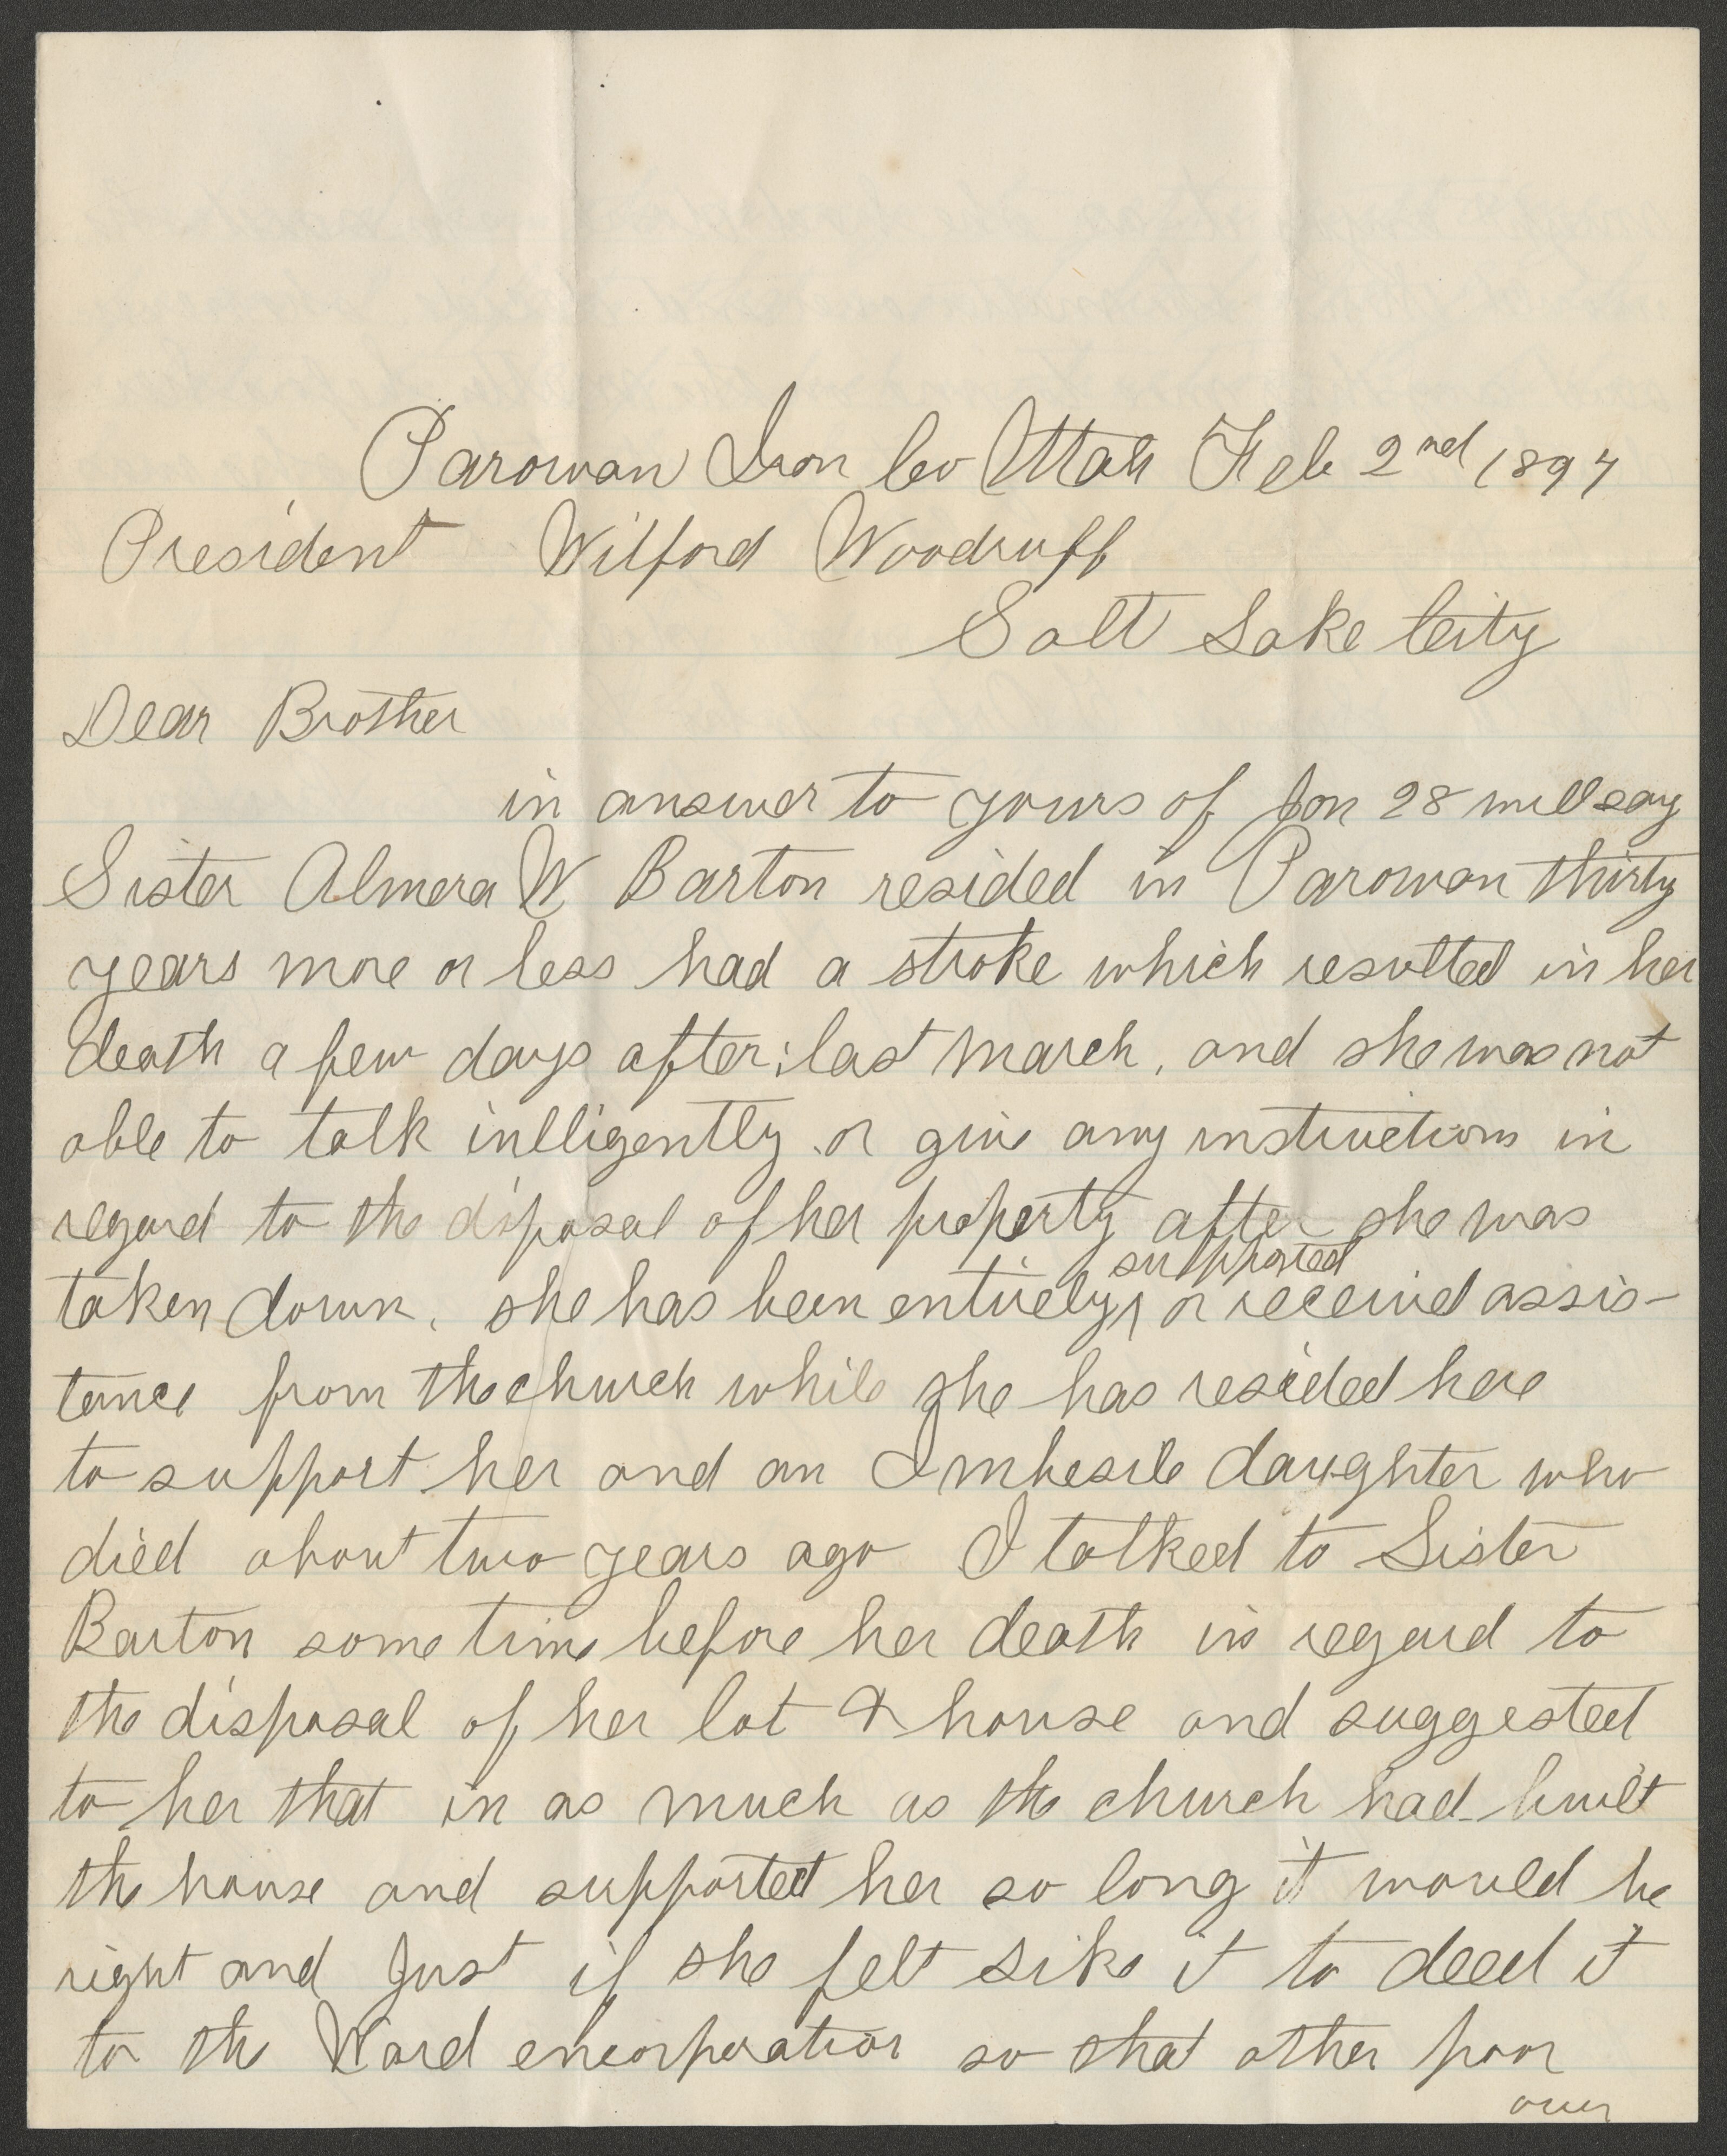 Parowan Iron Co Utah Feb 2nd 1897
President Wilford Woodruff
Salt Lake City
Dear Brother
in answer to yours of Jan 28 will say
Sister Almera W Barton resided in Parowan thirty
years more or less had a stroke which resulted in her
death a few days after last March, and she was not
able to talk inlligently or give any instructions in
regard to the disposal of her property after she was
taken down. she has been entirely supported or received assis-
tance from the church while she has resided here
to support her and an Imbesile daughter who
died about two years ago I talked to Sister
Barton some time before her death in regard to
the disposal of her lot & house and suggested
to her that in as much as the church had built
the house and supported her so long it would be
right and Just if she felt Like it to deed it
to the Ward encorporation so that other poor
over